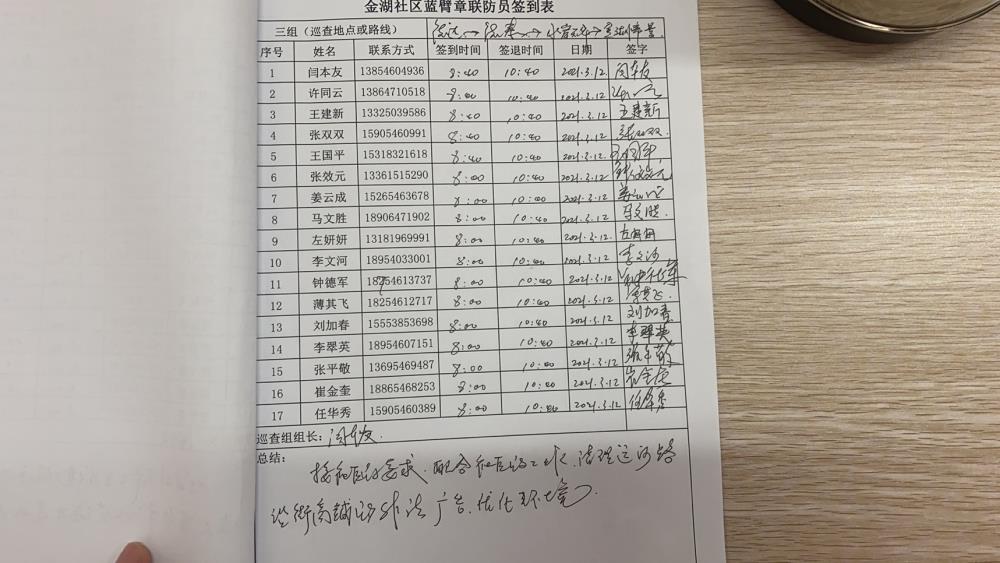 金湖社区蓝臂章联防员签到表
三组（巡查地点或路线）
序号 姓名 联系方式 签到时间 签退时间 日期 签字
1 闫本友 13854604936 8:40 10:40 2021.3.12
2 许同云 13864710518 8:00 10:40 2021.3.12
3 王建新 13325039586 8:40 10:40 2021.3.12 王建新
4 张双双 15905460991 8:40 10:40 2021.3.12 张双双
5 王国平 15318321618 8:40 10:40 2021.3.12 王国平
6 张效元 13361515290 8:00 10:40 2021.3.12 张效元
7 姜云成 15265463678 8:00 10:40 2021.3.12 姜云成
8 马文胜 18906471902 8:00 10:40 2021.3.12 马文胜
9 左妍妍 13181969991 8:00 10:40 2021.3.12 左妍妍
10 李文河 18954033001 8:00 10:40 2021.3.12 李文河
11 钟德军 54613737 8:00 10:40 2021.3.12 钟德军
12 薄其飞 18254612717 8:00 10:40 2021.3.12 薄其飞
13 刘加春 15553853698 8:00 10:40 2021.3.12 刘加春
14 李翠英 18954607151 8:00 10:40 2021.3.12 李翠英
15 张平敬 13695469487 8:00 10:40 2021.3.12 张平敬
16 崔金奎 18865468253 8:00 10:40 2021.3.12 崔金奎
17 任华秀 15905460389 8:00 10:40 2021.3.12 任华秀
巡查组组长：
总结：
按社区的要求，配合社区的工作，清理运河路
沿街商铺的非法广告，优化环境。